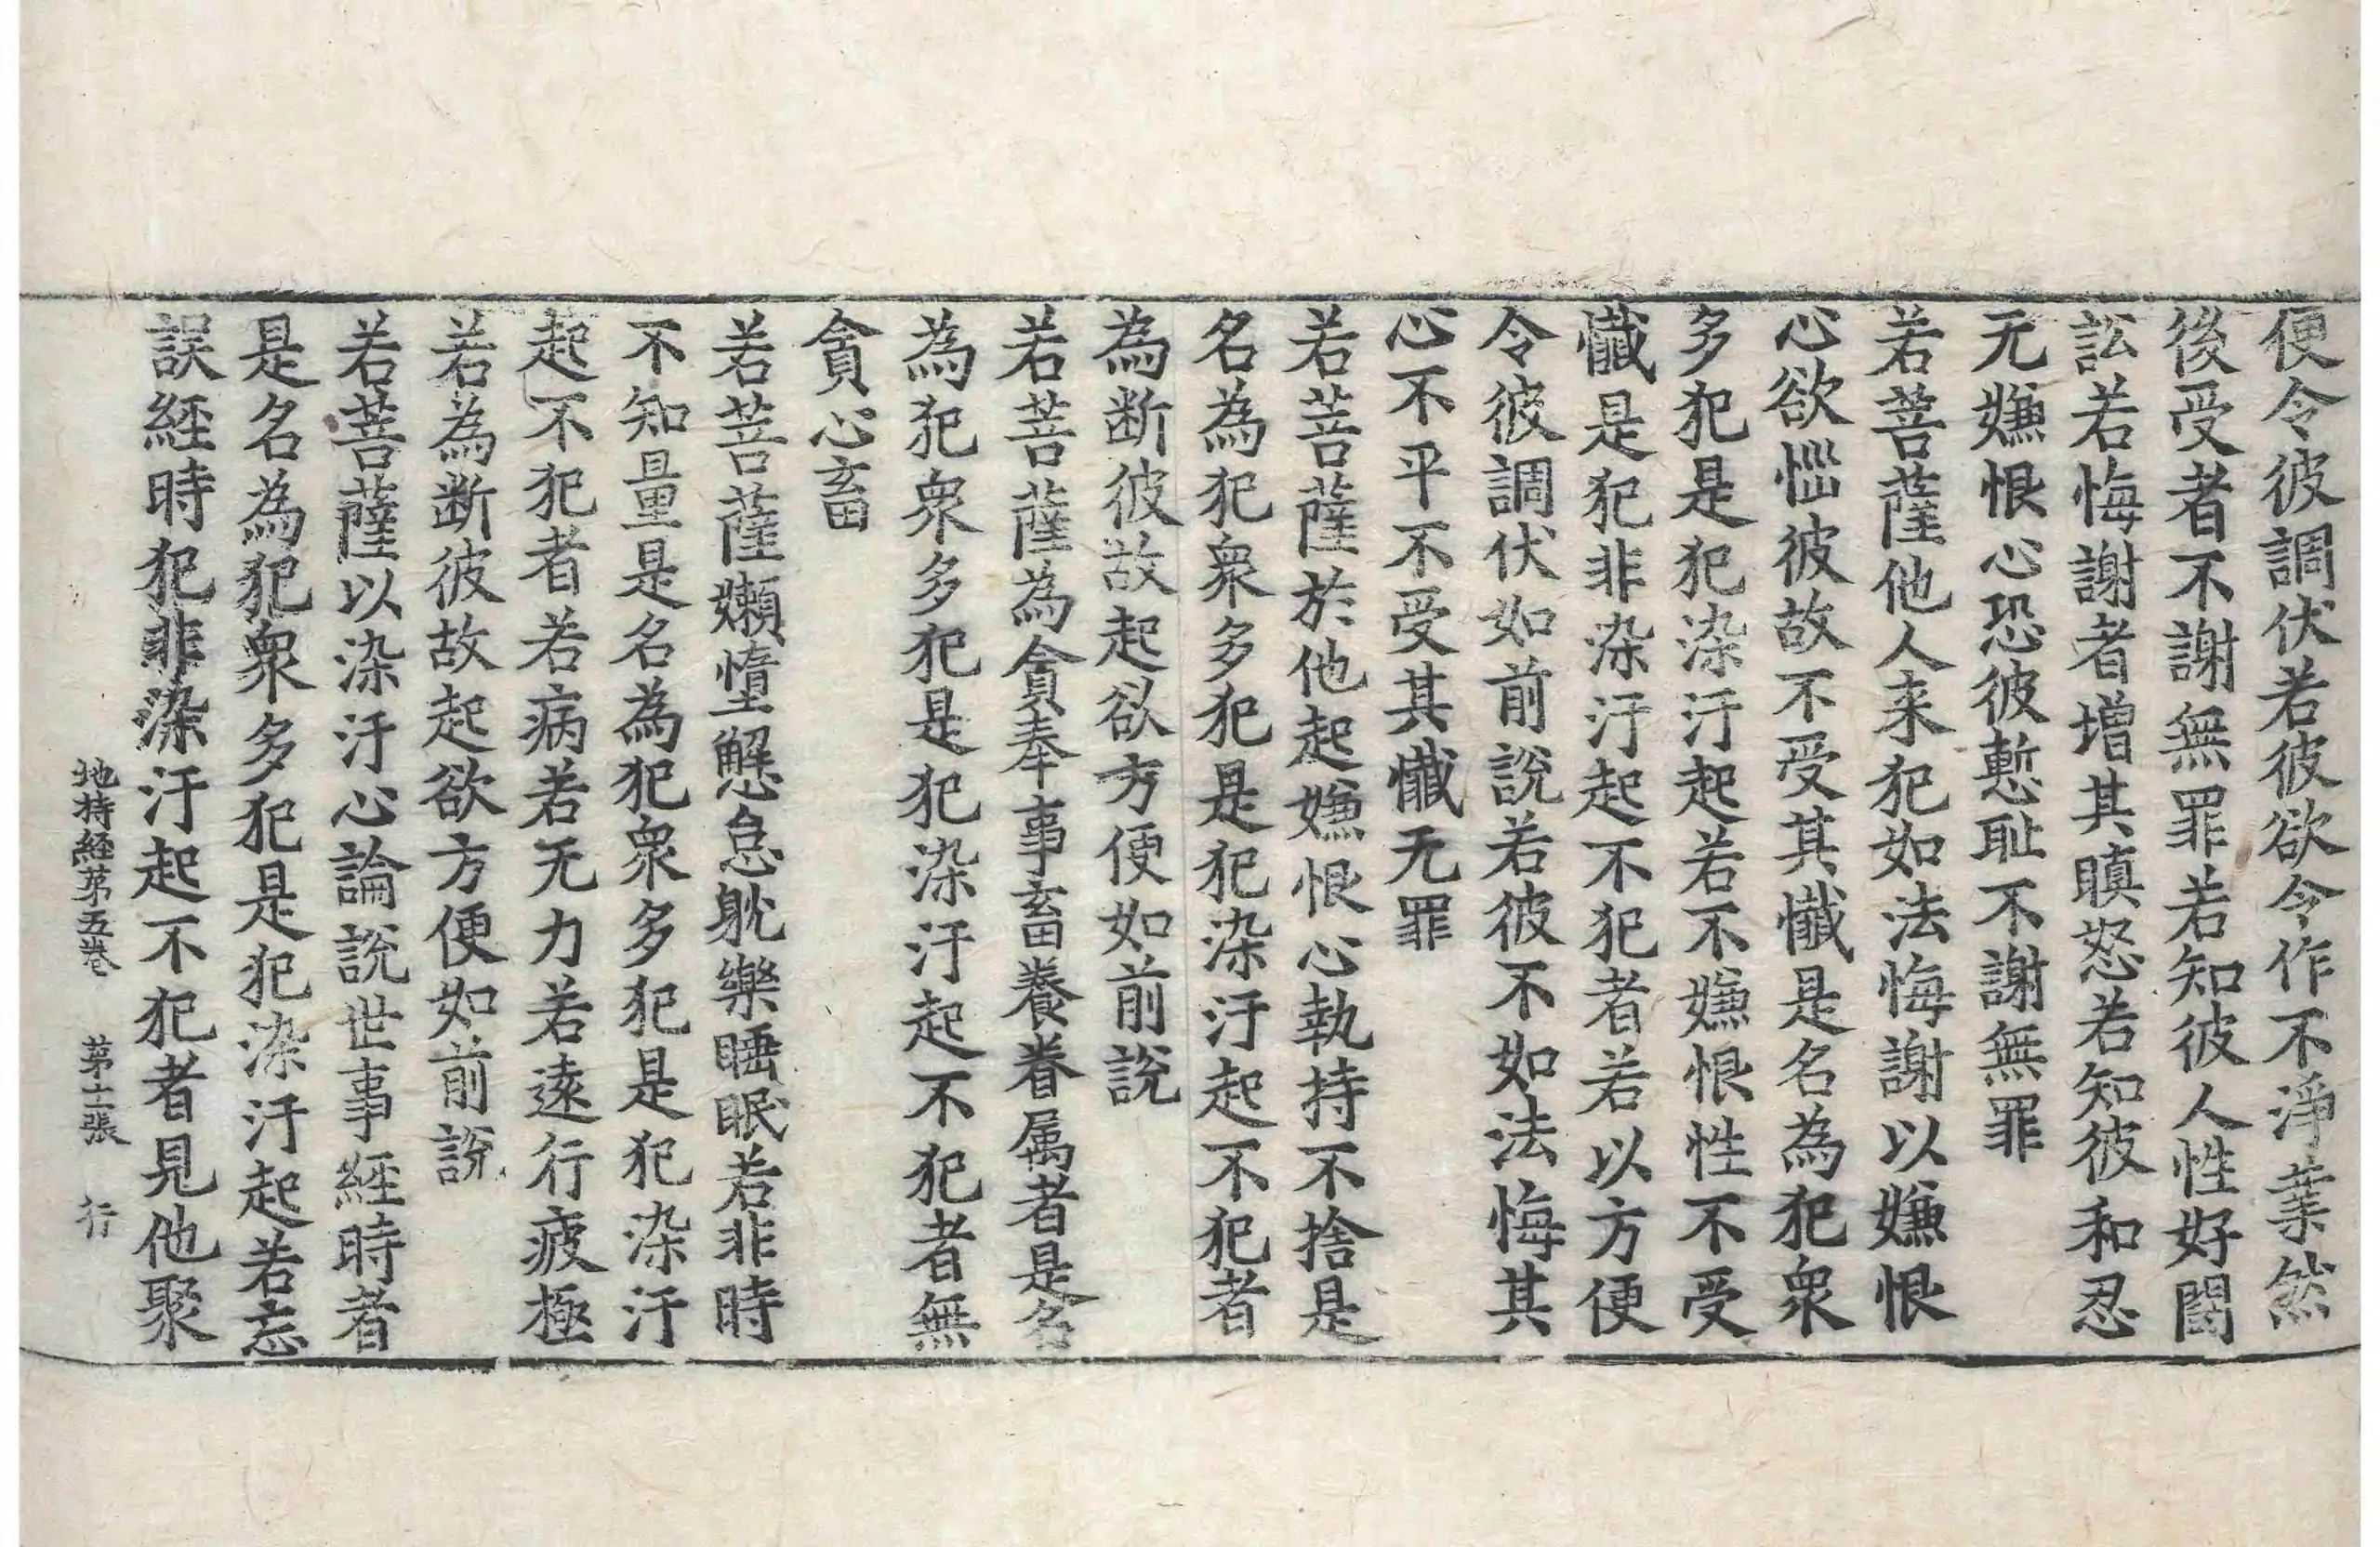 便令彼調伏若彼欲令作不淨業然
後受者不謝無罪若知彼人性好鬪
訟若悔謝者增其瞋怒若知彼和忍
无嫌恨心恐彼慙耻不謝無罪
若菩薩他人来犯如法悔謝以嫌恨
心欲惱彼故不受其懺是名為犯衆
多犯是犯染汙起若不嫌恨性不受
懺是犯非染汙起不犯者若以方便
令彼調伏如前說若彼不如法悔其
心不平不受其懺无罪
若菩薩於他起嫌恨心執持不捨是
名為犯衆多犯是犯染汙起不犯者
為断彼故起欲方便如前說
若菩薩為貪奉事畜養眷属者是名
為犯衆多犯是犯染汙起不犯者無
貪心畜
若菩薩嬾憜懈怠躭樂睡眠若非時
不知量是名為犯衆多犯是犯染汙
起不犯者若病若无力若遠行疲極
若為断彼故起欲方便如前說
若菩薩以染汙心論說世事經時者
是名為犯衆多犯是犯染汙起若忘
誤経時犯非染汙起不犯者見他聚
地持経第五卷 第十二張 行